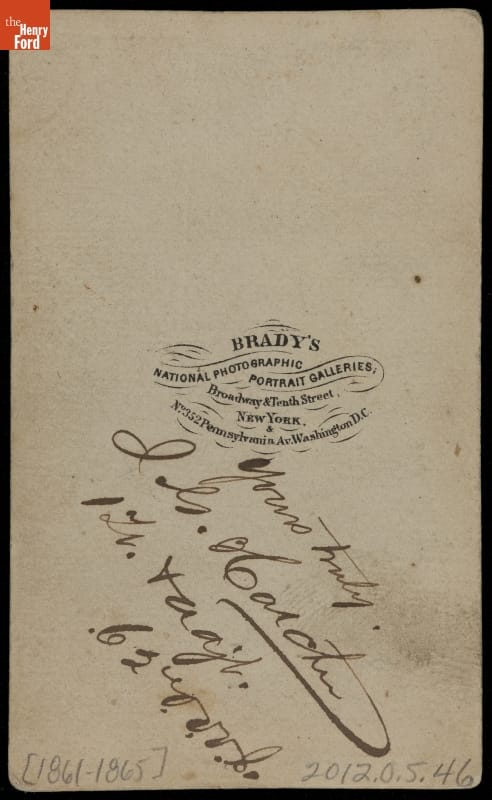 the
Henry
Ford
BRADY'S
NATIONAL PHOTOGRAPHIC
PORTRAIT GALLERIES,
Broadway & Tenth Street,
NEW YORK.
&
No. 352 Pennsylvania Av. Washington D.C.
Yours truly.
J. G.
1st Lt. & Adjt.
62nd
[1861-1865]
2012.0.5.46